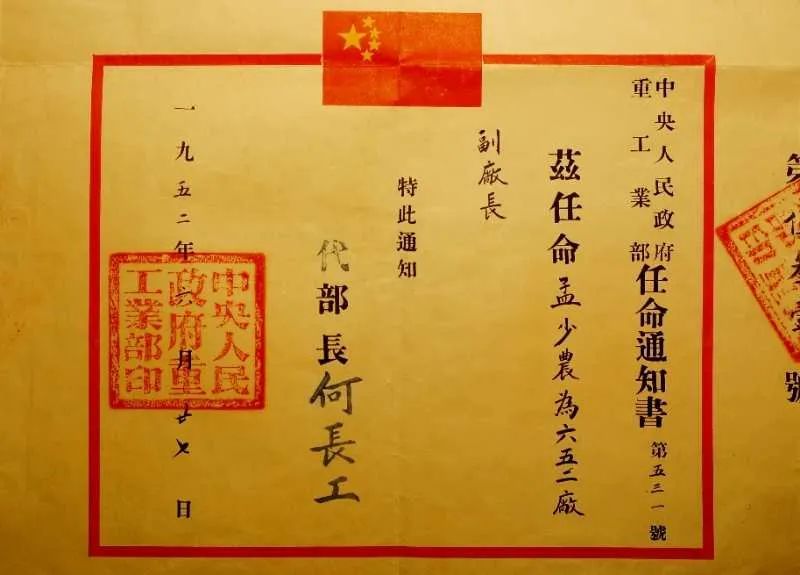 中央人民政府
重工業部
任命通知書 第五三一號
茲任命孟少農為六五二廠
副廠長
特此通知
代部長何長工
一九五二年六月廿七日
中央人民
政府重
工業部印
號